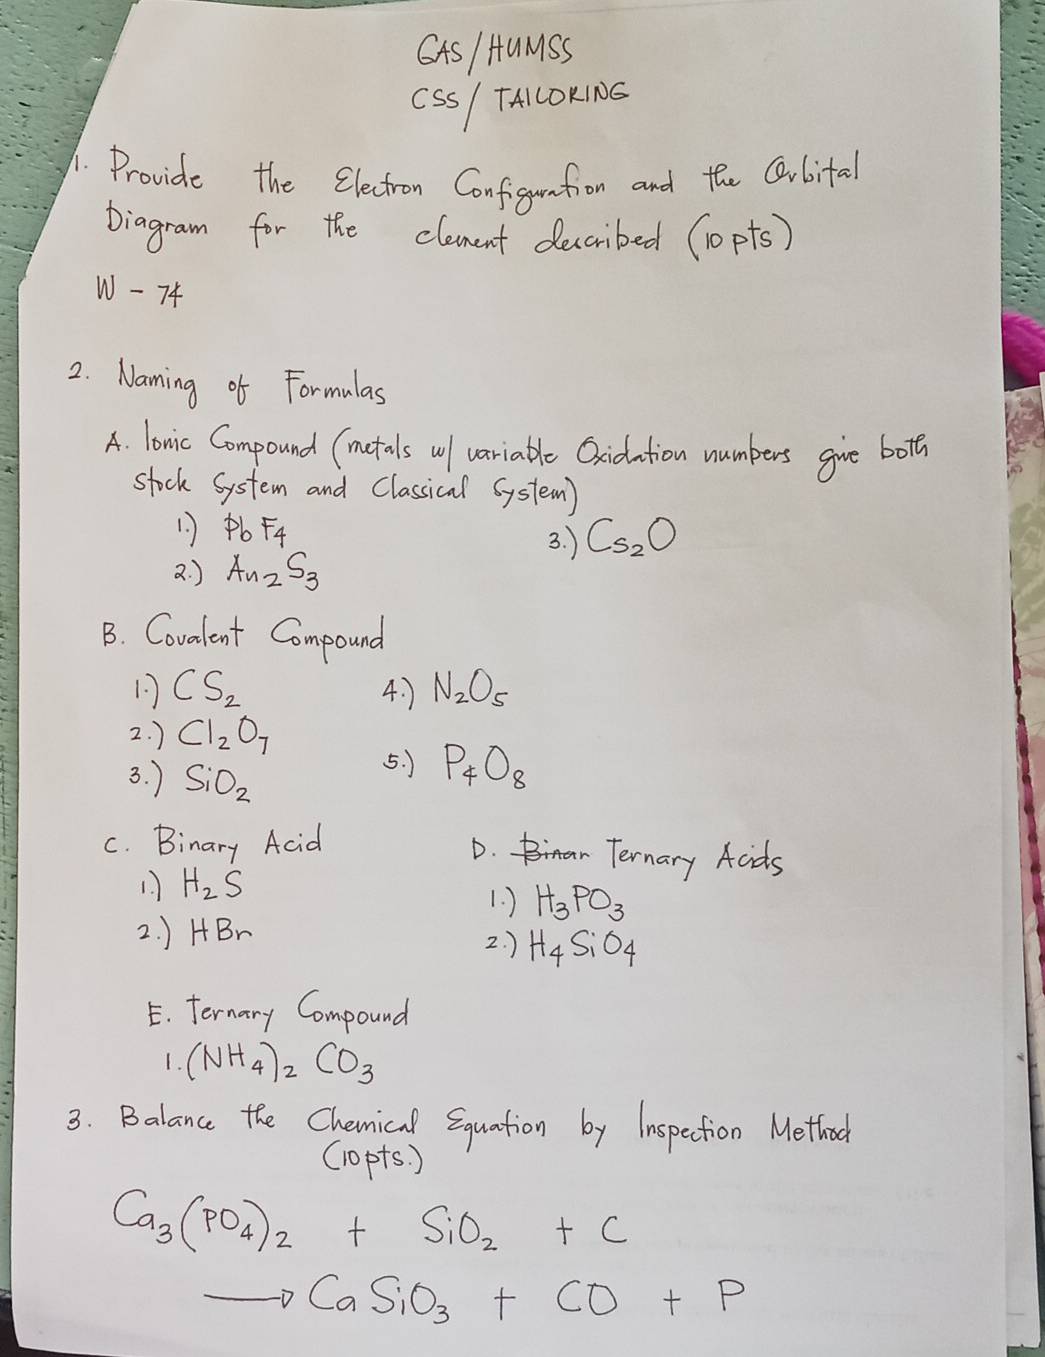 GAS/HUMSS
CSS/TAILORING
1. Provide the Electron Configuration and the Orbital
Diagram for the element described (10 pts)
W - 74
2. Naming of Formulas
A. Ionic Compound (metals w/ variable Oxidation numbers give both
stock System and Classical System)
1.) PbF4
3.) Cs2O
2.) Au2S3
B. Covalent Compound
1.) CS2
4.) N2O5
2.) Cl2O7
5.) P4O8
3.) SiO2
C. Binary Acid
D. Binar Ternary Acids
1.) H2S
1.) H3PO3
2.) HBr
2.) H4SiO4
E. Ternary Compound
1. (NH4)2 CO3
3. Balance the Chemical Equation by Inspection Method
(10pts.)
Ca3(PO4)2 + SiO2 + C
→ CaSiO3 + CO + P